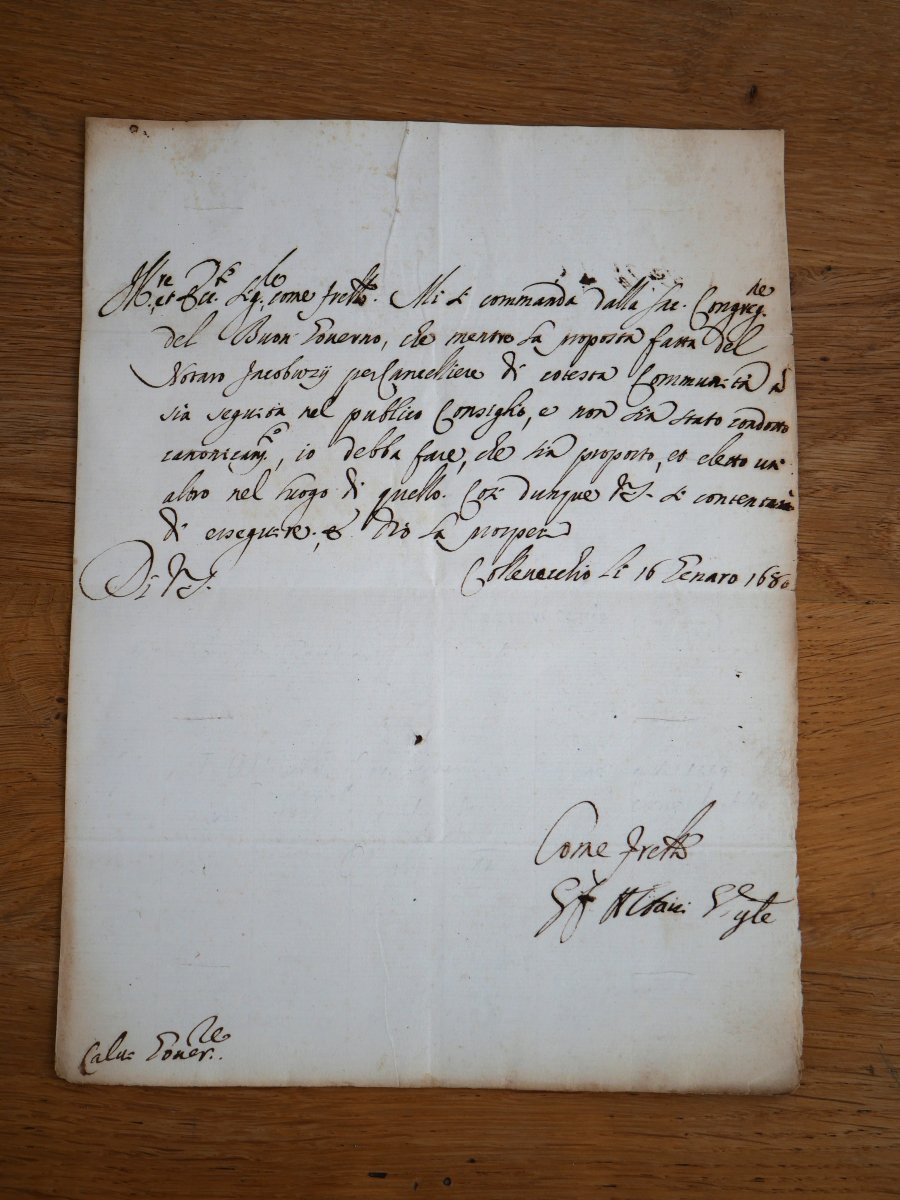 M.re et Ecc.te Sig.re come fretllo. Mi si commanda dalla Sac. Congreg.ne
del Buon Governo, che mentre la proposta fatta del
Notaro Jacobuzij per Cancelliere di cotesta Communità
sia seguita nel publico Consiglio, e non sia stato condotto
canonicam.to, io debba fare, che sia proposto, et eletto un'
altro nel luogo di quello. Così dunque V.S. si contentarà
di eseguire, & Dio la prosperi
Di V.S. Collevecchio li 16 Genaro 1680
Come fretllo
Albani
Calvi Gover.re